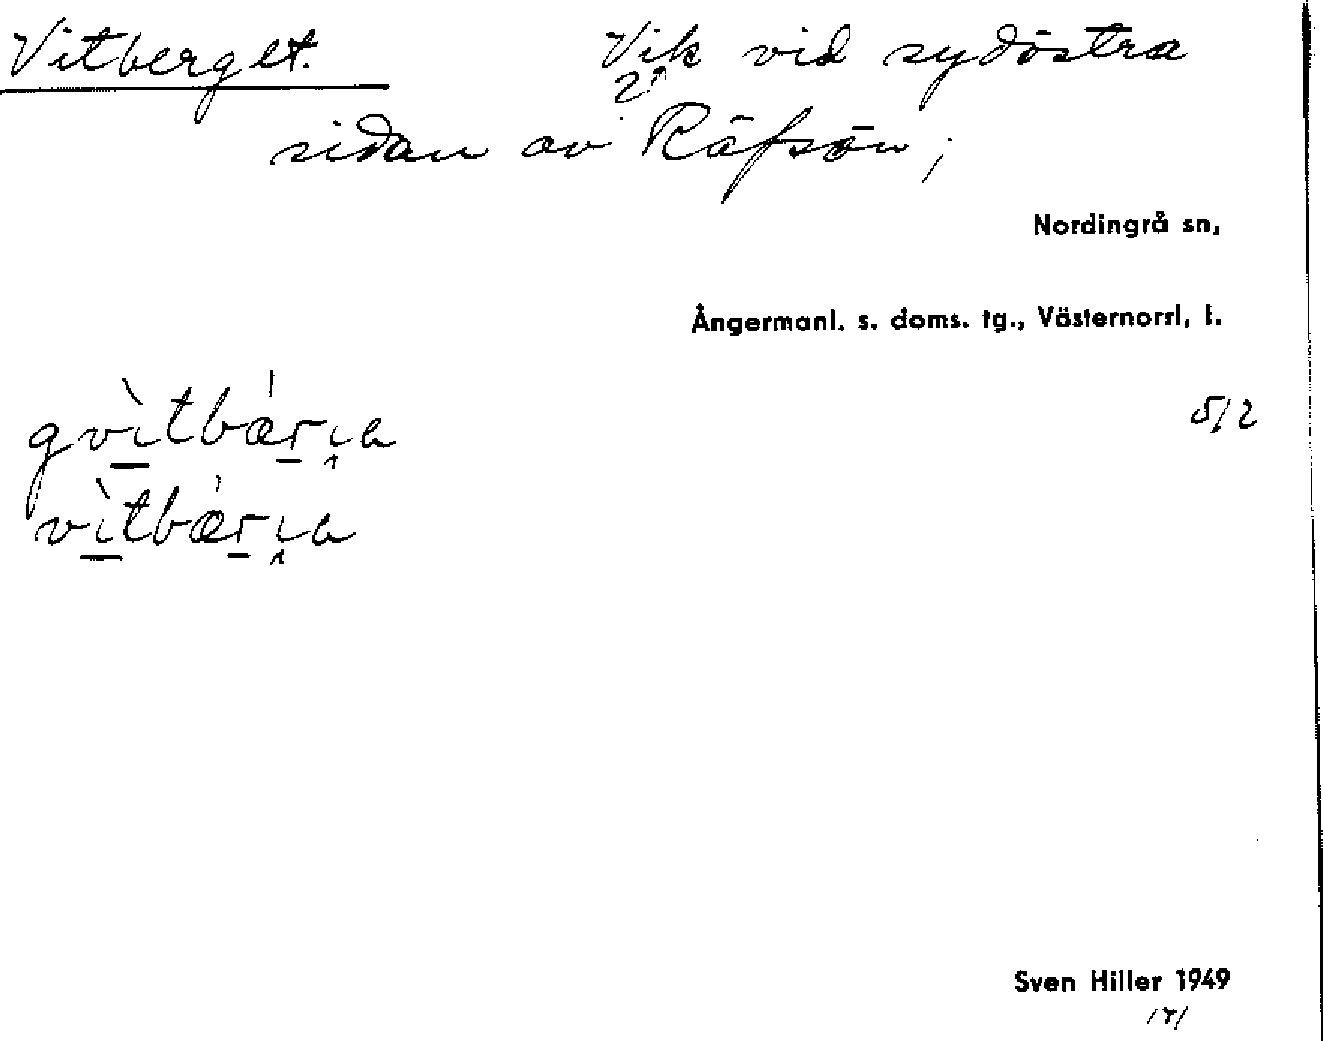 Vitberget. Vik vid sydöstra
sidan av Räfsön;
Nordingrå sn,
Ångermanl. s. doms. tg., Västernorrl. l.
5/2
Sven Hiller 1949